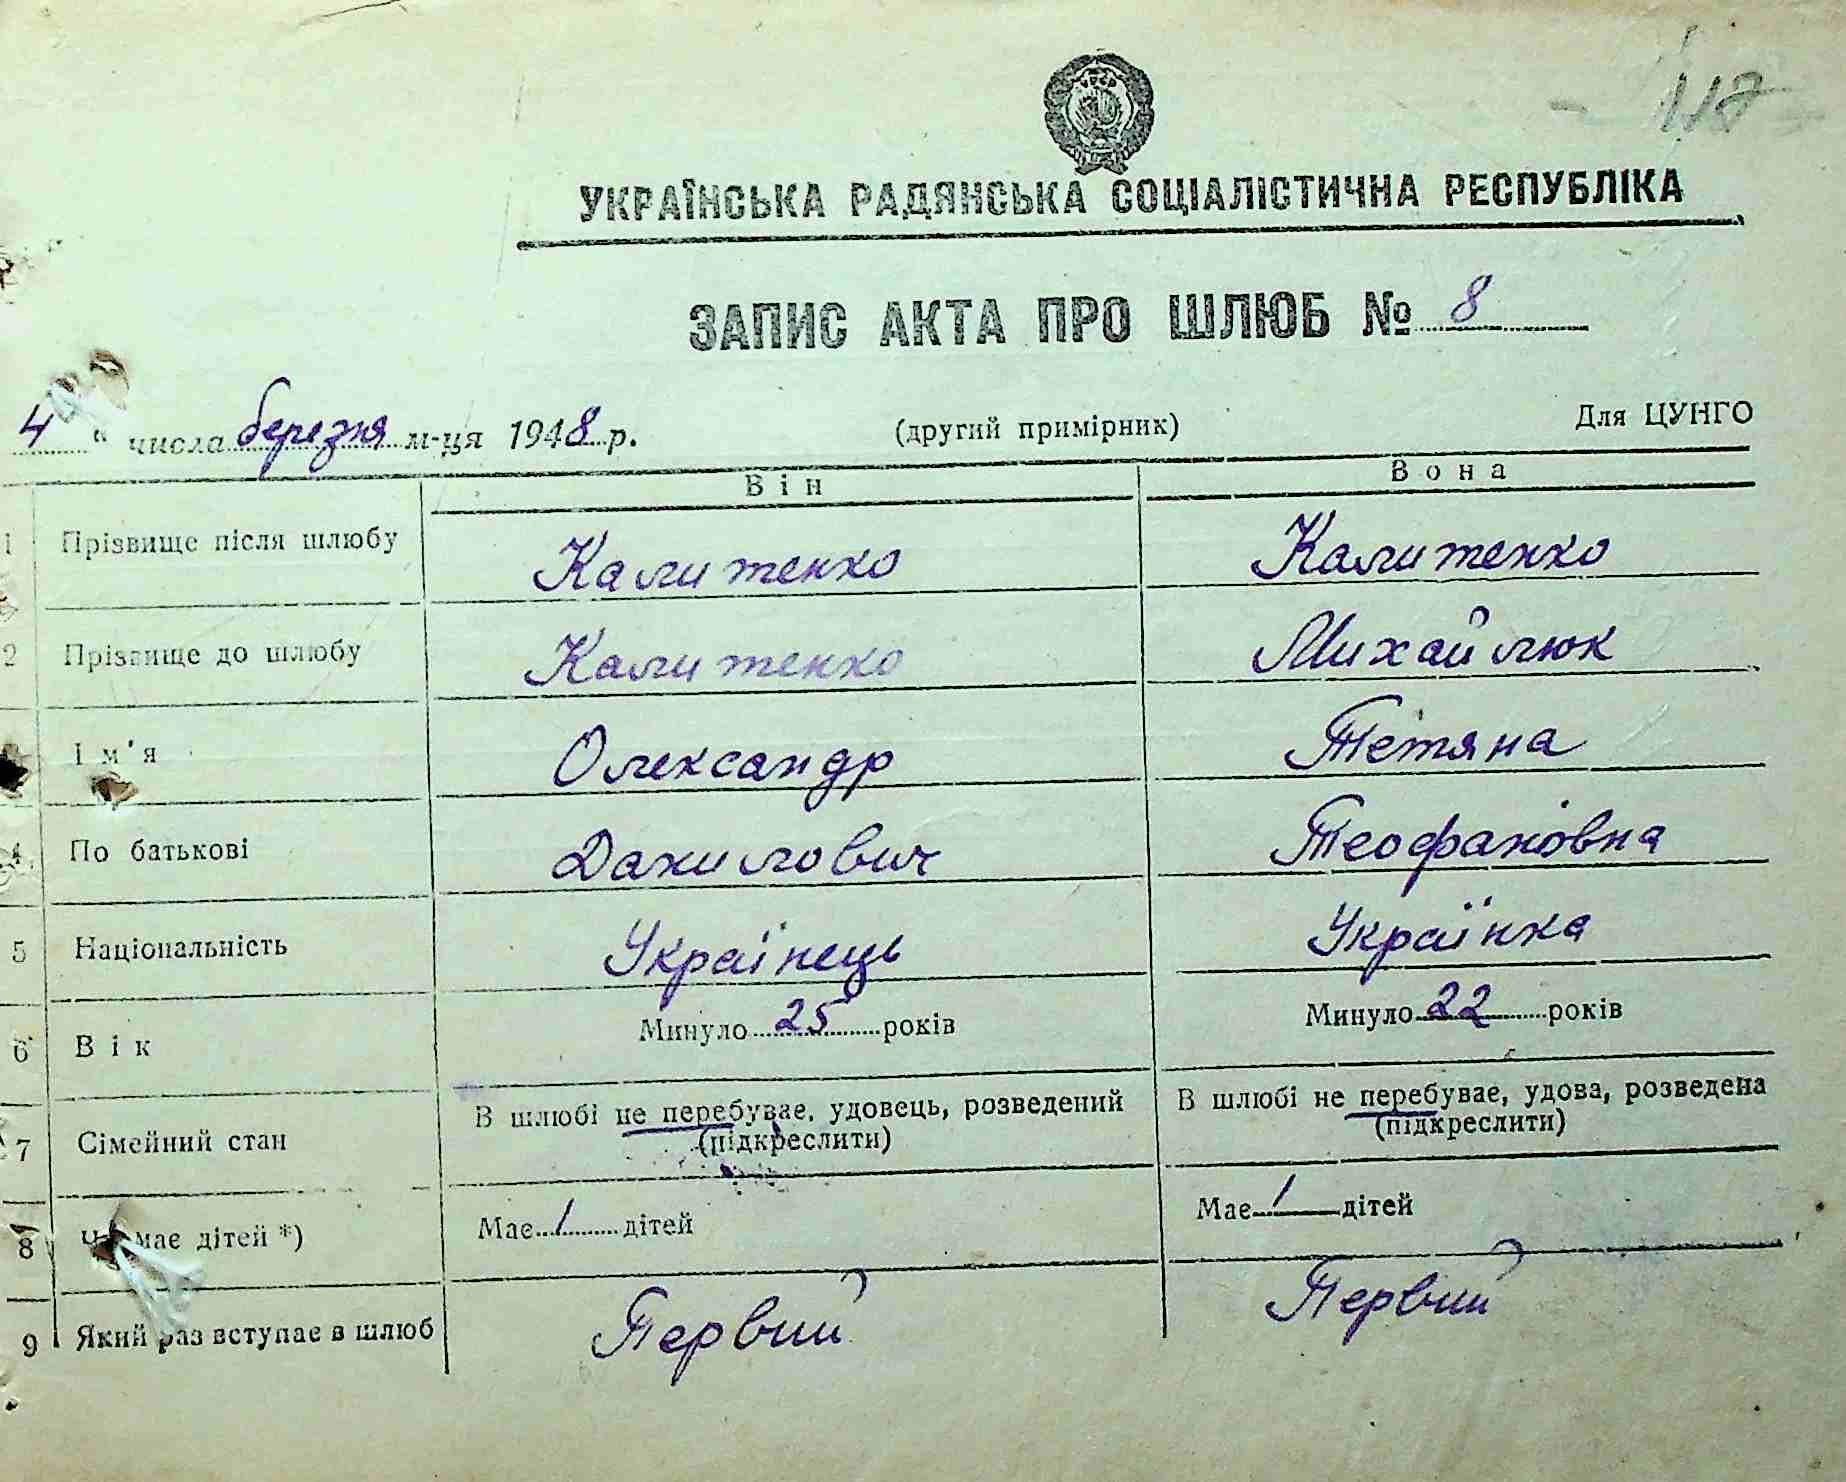 117
УКРАЇНСЬКА РАДЯНСЬКА СОЦІАЛІСТИЧНА РЕСПУБЛІКА
ЗАПИС АКТА ПРО ШЛЮБ № 8
4 " числа березня м-ця 1948 р. (другий примірник) Для ЦУНГО
Він Вона
1 Прізвище після шлюбу Калитенко Калитенко
2 Прізвище до шлюбу Калитенко Михайлюк
Ім'я Олександр Тетяна
4 По батькові Данилович Теофановна
5 Національність Українець Українка
6 Вік Минуло 25 років Минуло 22 років
7 Сімейний стан В шлюбі не перебуває, удовець, розведений (підкреслити) В шлюбі не перебуває, удова, розведена (підкреслити)
8 має дітей *) Має / дітей Має / дітей
9 Який раз вступає в шлюб Первий Первий